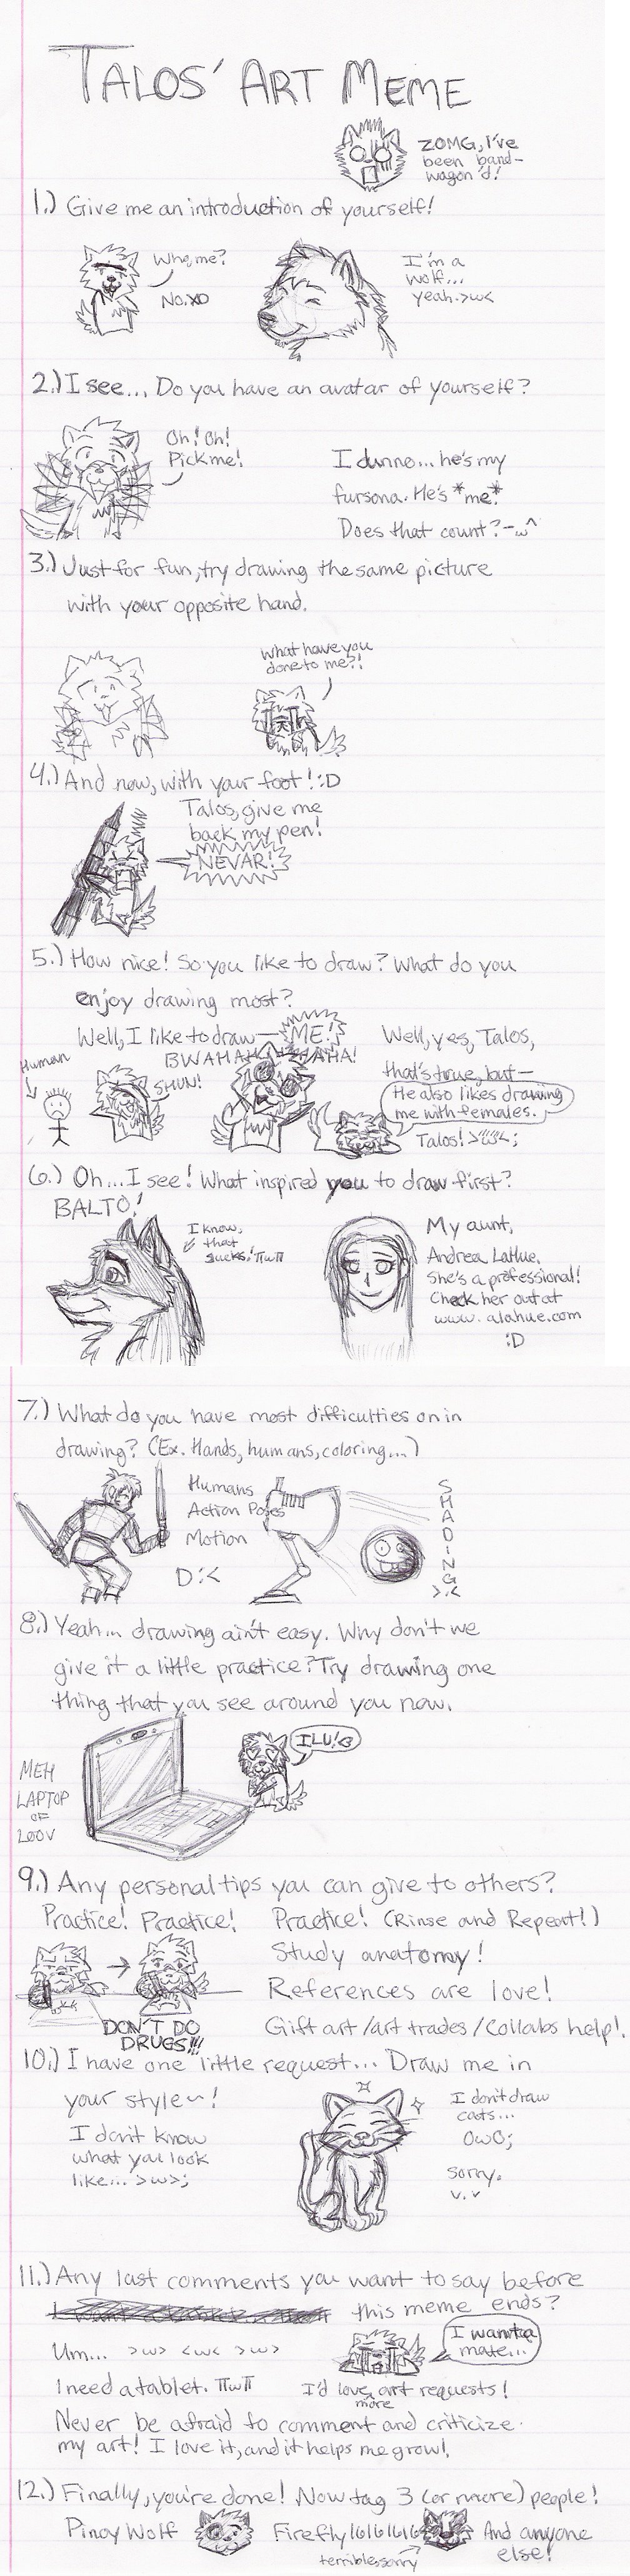 TALOS' ART MEME
ZOMG, I've
been band-
wagon'd!
1.) Give me an introduction of yourself!
Who, me?
No. XO
I'm a
wolf...
yeah. >w<
2.) I see... Do you have an avatar of yourself?
Oh! Oh!
Pick me!
I dunno... he's my
fursona. He's *me*.
Does that count? -ω^
3.) Just for fun, try drawing the same picture
with your opposite hand.
What have you
done to me?!
4.) And now, with your foot! :D
Talos, give me
back my pen!
NEVAR!
5.) How nice! So you like to draw? What do you
enjoy drawing most?
Well, I like to draw— ME!
BWAHAHAHAHA!
Human
SHUN!
Well, yes, Talos,
that's true, but—
He also likes drawing
me with females.
Talos! >"w"<;
6.) Oh... I see! What inspired you to draw first?
BALTO!
I know,
that
sucks! TTwTT
My aunt,
Andrea LaHue.
She's a professional!
Check her out at
www.alahue.com
:D
7.) What do you have most difficulties on in
drawing? (Ex. Hands, humans, coloring...)
Humans
Action Poses
Motion
D:<
SHADING
>.<
8.) Yeah... drawing ain't easy. Why don't we
give it a little practice? Try drawing one
thing that you see around you now.
MEH
LAPTOP
OF
LOOV
ILU! <3
9.) Any personal tips you can give to others?
Practice! Practice! Practice! (Rinse and Repeat!)
Study anatomy!
References are love!
DON'T DO
DRUGS!!!
Gift art/art trades/collabs help!
10.) I have one little request... Draw me in
your style~!
I don't know
what you look
like... >w>;
I don't draw
cats...
OwO;
sorry.
v.v
11.) Any last comments you want to say before
this meme ends?
Um... >w> <w< >w>
I want a
mate...
I need a tablet. TTwTT
I'd love more art requests!
Never be afraid to comment and criticize
my art! I love it, and it helps me grow!
12.) Finally, you're done! Now tag 3 (or more) people!
Pinoy Wolf
Firefly16161616
And anyone
else!
terrible, sorry